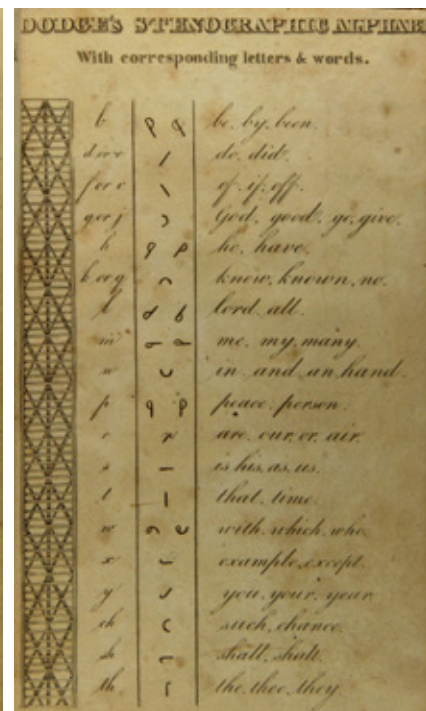 DODGE'S STENOGRAPHIC ALPHABE
With corresponding letters & words.
b be. by. been.
d or r do. did.
f or v of. if. off.
g or j God. good. go. give.
h he. have.
k or q know. known. no.
l lord. all.
m me. my. many.
n in. and. an. hand.
p peace. person.
r are. our. or. air.
s is. his. as. us.
t that. time.
w with. which. who.
x example. except.
y you. your. year
ch such. chance.
sh shall. shalt.
th the. thee. they.